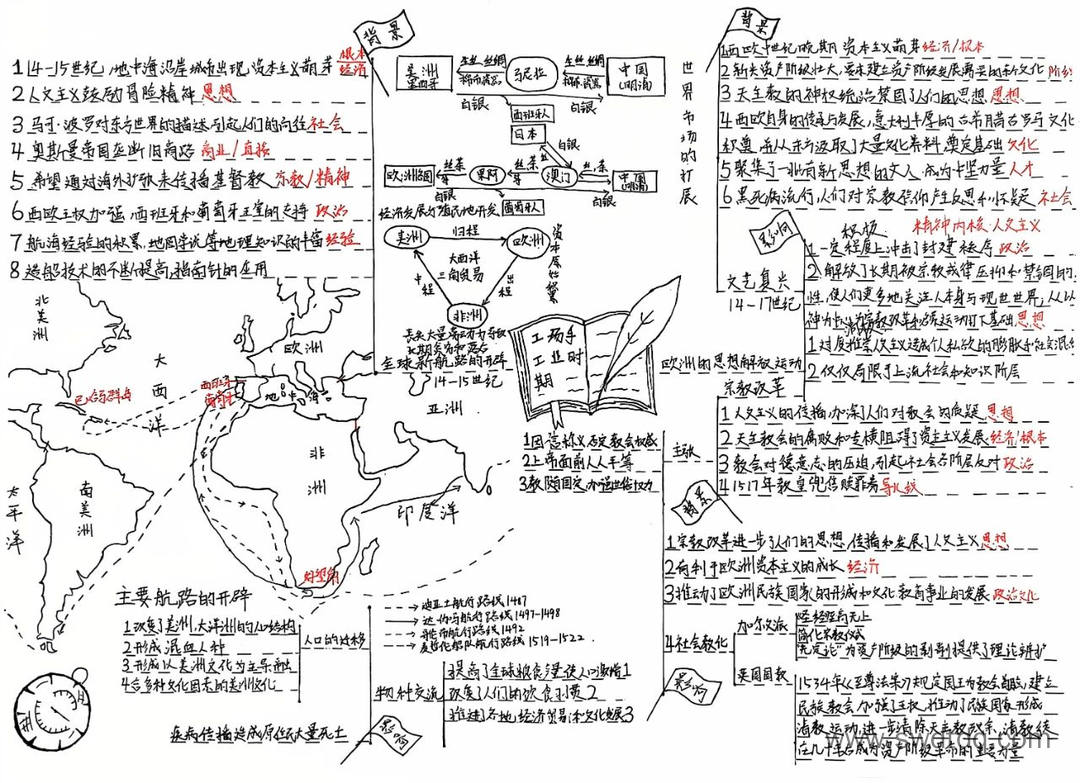 背景
1 14-15世纪,地中海沿岸城市出现资本主义萌芽 根本
经济
2 人文主义鼓励冒险精神 思想
3 马可·波罗对东方世界的描述引起人们的向往 社会
4 奥斯曼帝国垄断旧商路 商业/直接
5 希望通过海外扩张来传播基督教 宗教/精神
6 西欧王权加强,西班牙和葡萄牙王室的支持 政治
7 航海经验的积累,地圆学说等地理知识的丰富 经验
8 造船技术的不断提高,指南针的应用
美洲
墨西哥
生丝 丝绸
棉布 瓷器
马尼拉
生丝 丝绸
棉布 瓷器
中国
(明清)
白银
白银
西班牙人
日本
白银
欧洲诸国
生丝 茶
果阿
生丝 茶
澳门
丝 茶
中国
(明清)
白银
白银
葡萄牙人
世界市场的扩展
经济发展 殖民地开发
美洲
归程
欧洲
大西洋
三角贸易
中程
出程
非洲
资本原始积累
丧失大量劳动力
长期贫穷和落后
全球新航路的开辟
14-15世纪
北美洲
大西洋
欧洲
西班牙
葡萄牙
巴哈马群岛
地中海
亚洲
非洲
太平洋
南美洲
印度洋
好望角
工场手
工业时
期
主要航路的开辟
迪亚士航行路线1487
达·伽马航行路线1497-1498
哥伦布航行路线1492
麦哲伦船队航行路线1519-1522
人口的迁移
1 改变了美洲、大洋洲的人口结构
2 形成混血人种
3 形成以美洲文化为主导融
4 含多种文化因素的美洲文化
疾病传播造成原住民大量死亡
物种交流
提高了全球粮食产量使人口激增1
改变了人们的饮食习惯2
推进各地经济贸易和文化发展3
影响
背景
1 西欧中世纪晚期资本主义萌芽 经济/根本
2 新兴资产阶级壮大,要求建立资产阶级发展需要的新文化
3 天主教的神权统治禁固了人们的思想 思想
4 西欧自身的传承与发展,意大利丰厚的古希腊古罗马文化
积奠,而从东方汲取大量文化养料,奠定基础 文化
5 聚集了一批有新思想的文人,成为中坚力量 人才
6 黑死病流行,人们对宗教信仰产生反思和怀疑 社会
影响
积极
精神内核:人文主义
文艺复兴
14-17世纪
1 一定程度上冲击了封建秩序 政治
2 解放了长期被宗教戒律压抑和禁锢的
性,使人们更多地关注人本身与现世世界,从
神为 为宗教改革和启蒙运动打下基础 思想
消极
1 对 推崇人文主义造成个人私欲的膨胀和社会混
2 仅仅局限于上流社会和知识阶层
欧洲的思想解放运动
宗教改革
主张
1 因信称义 否定教会权威
2 上帝面前人人平等
3 教随国定 加强世俗权力
背景
1 人文主义的传播,加深人们对教会的质疑 思想
2 天主教会的腐败和专横阻碍了资主义发展 经济/根本
3 教会对德意志的压迫,引起社会各阶层反对 政治
4 1517年教皇兜售赎罪券 导火线
影响
1 宗教改革进一步 了人们的思想 传播和发展了人文主义 思想
2 有利于欧洲资本主义的成长 经济
3 推动了欧洲民族国家的形成和文化教育事业的发展 政治文化
4 社会教化
加尔文派
圣经至高无上
简化宗教仪式
"先定论"为资产阶级的剥削提供了理论辩护
英国国教
1534年《至尊法案》规定国王为教会首脑,建立
民族教会,加强了王权,推动了民族国家形成
清教运动,进一步清除天主教改革,清教徒
在几十年后成为资产阶级革命的主要力量